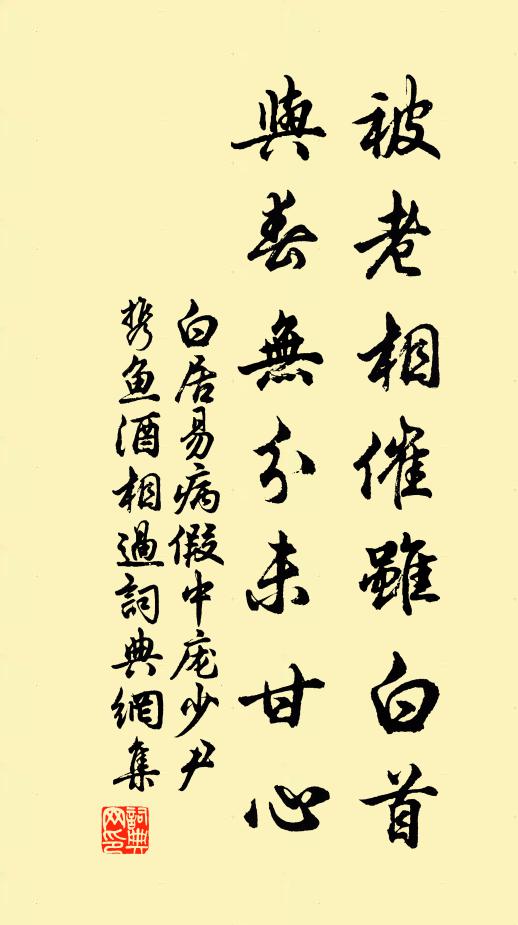 被老相催雖白首
與春無分未甘心
白居易病假中庞少尹
携鱼酒相過詞典網集
詞典網印